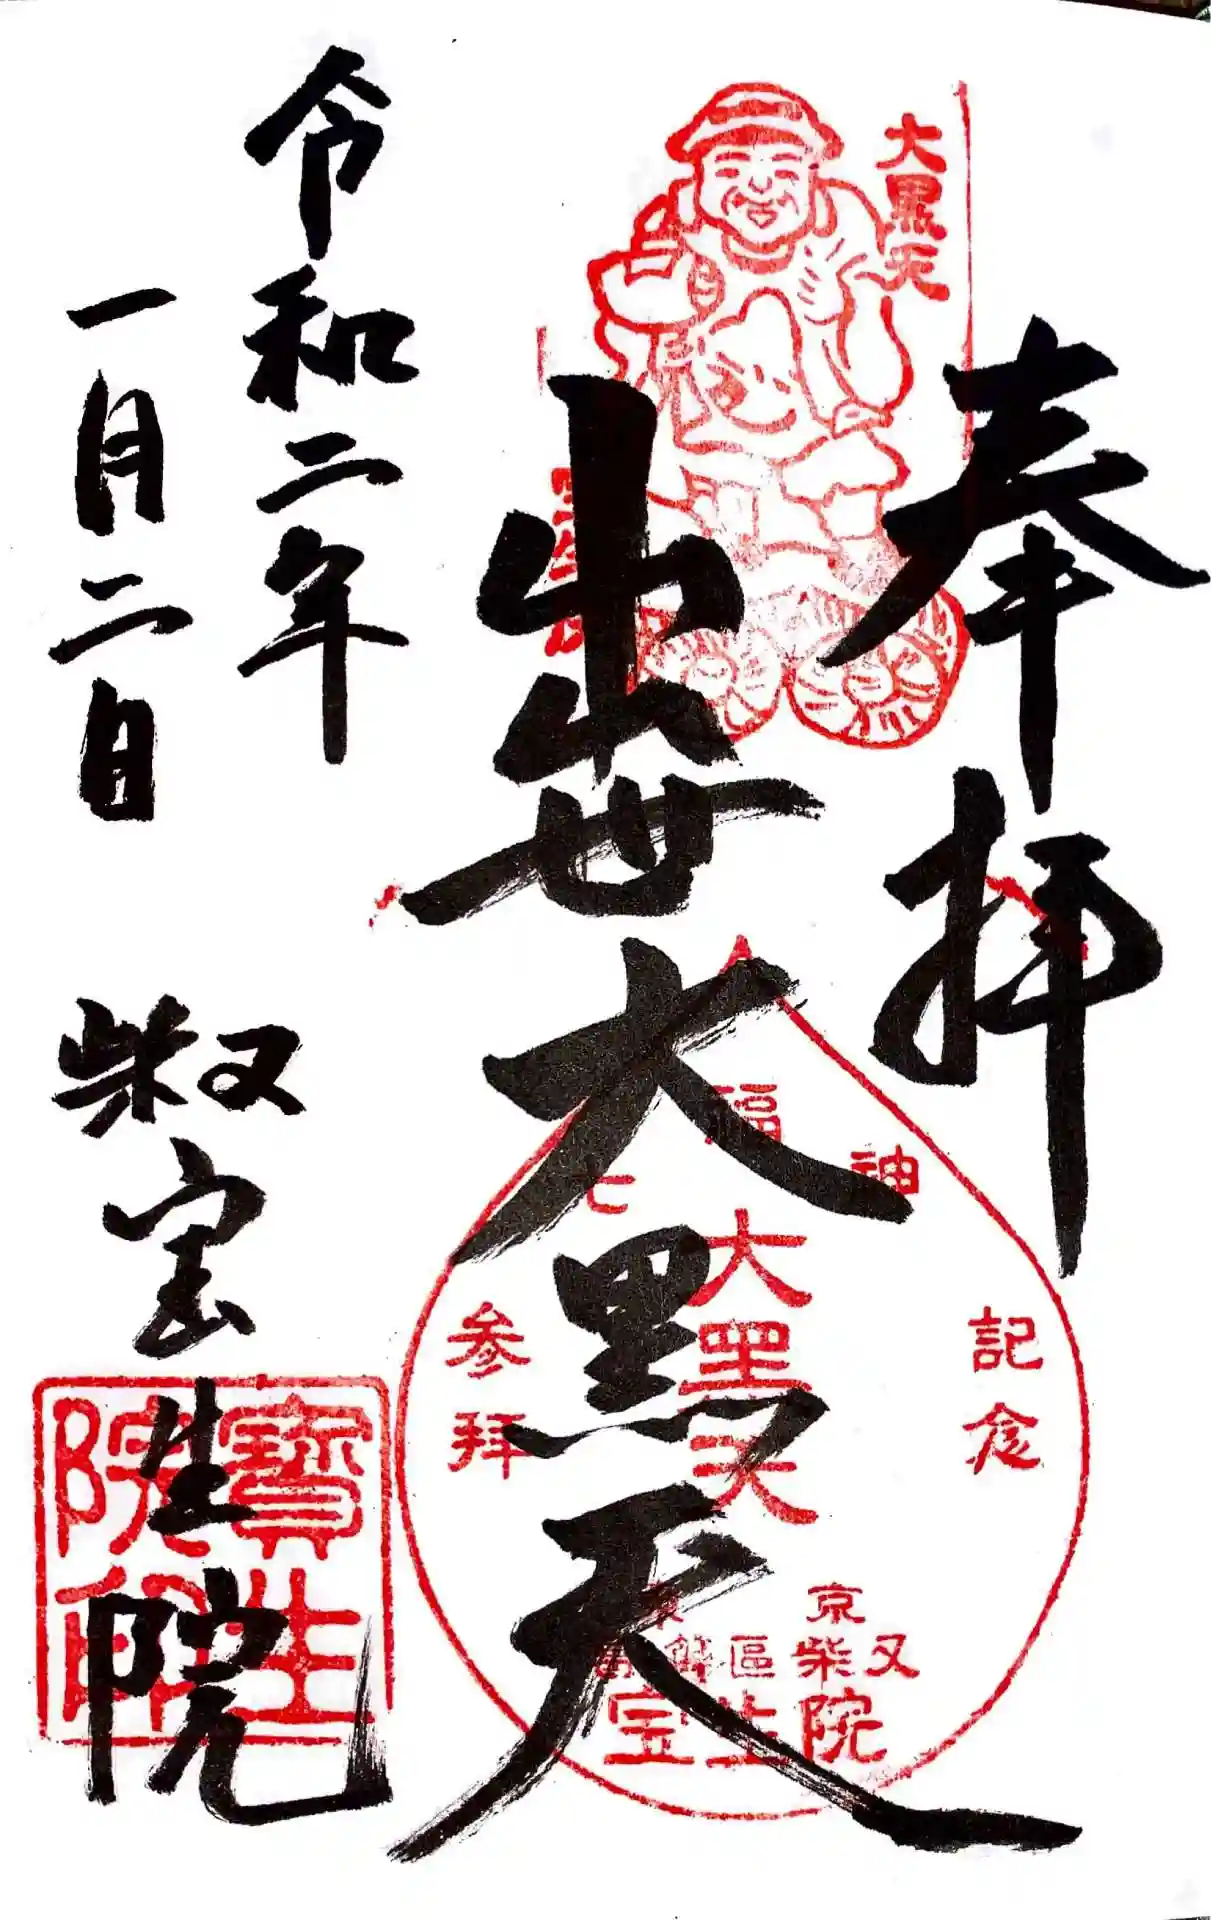 奉拝
大黒天
出世大黒天
福
神
七
参拝
記念
大黒天
京
區
柴又
宝生院
令和二年
一月二日
柴又
宝生院
寶生
院印